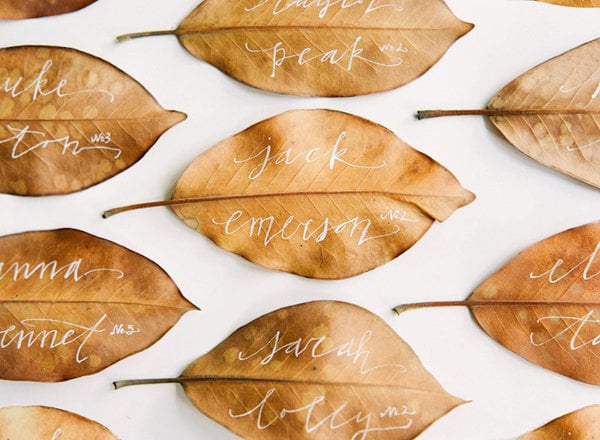 peak No.2
uke
ton No.3
jack
emerson No.2
anna
ennet No.5
sarah
lolly No.2